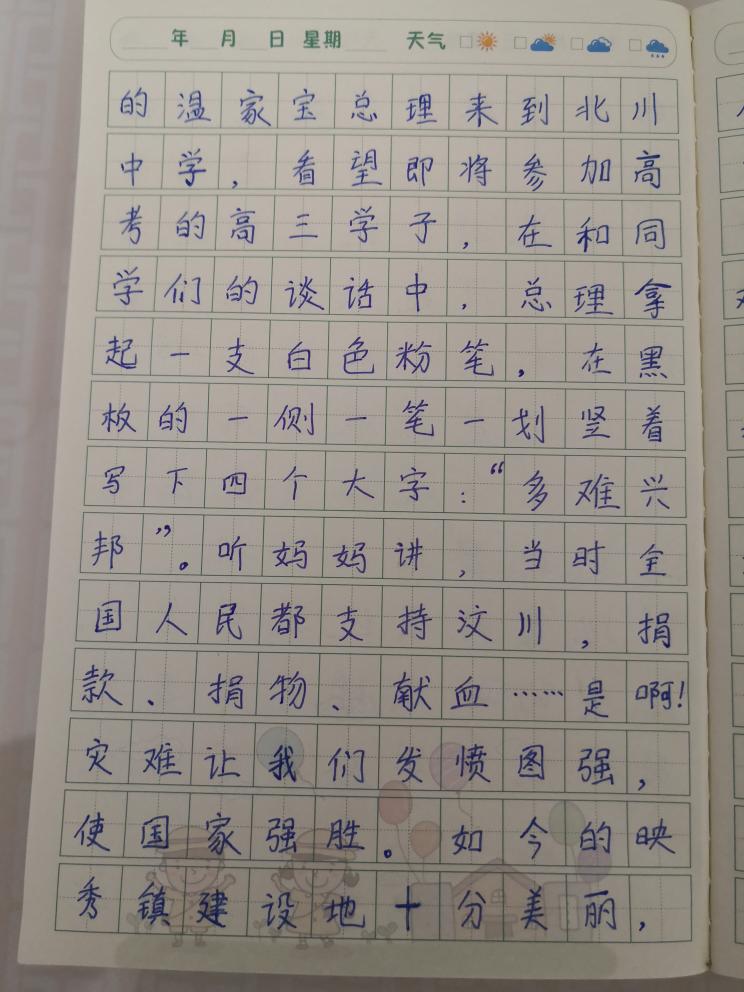 年 月 日 星期 天气
的温家宝总理来到北川
中学，看望即将参加高
考的高三学子，在和同
学们的谈话中，总理拿
起一支白色粉笔，在黑
板的一侧一笔一划竖着
写下四个大字：“多难兴
邦”。听妈妈讲，当时全
国人民都支持汶川，捐
款、捐物、献血……是啊！
灾难让我们发愤图强，
使国家强胜。如今的映
秀镇建设地十分美丽，